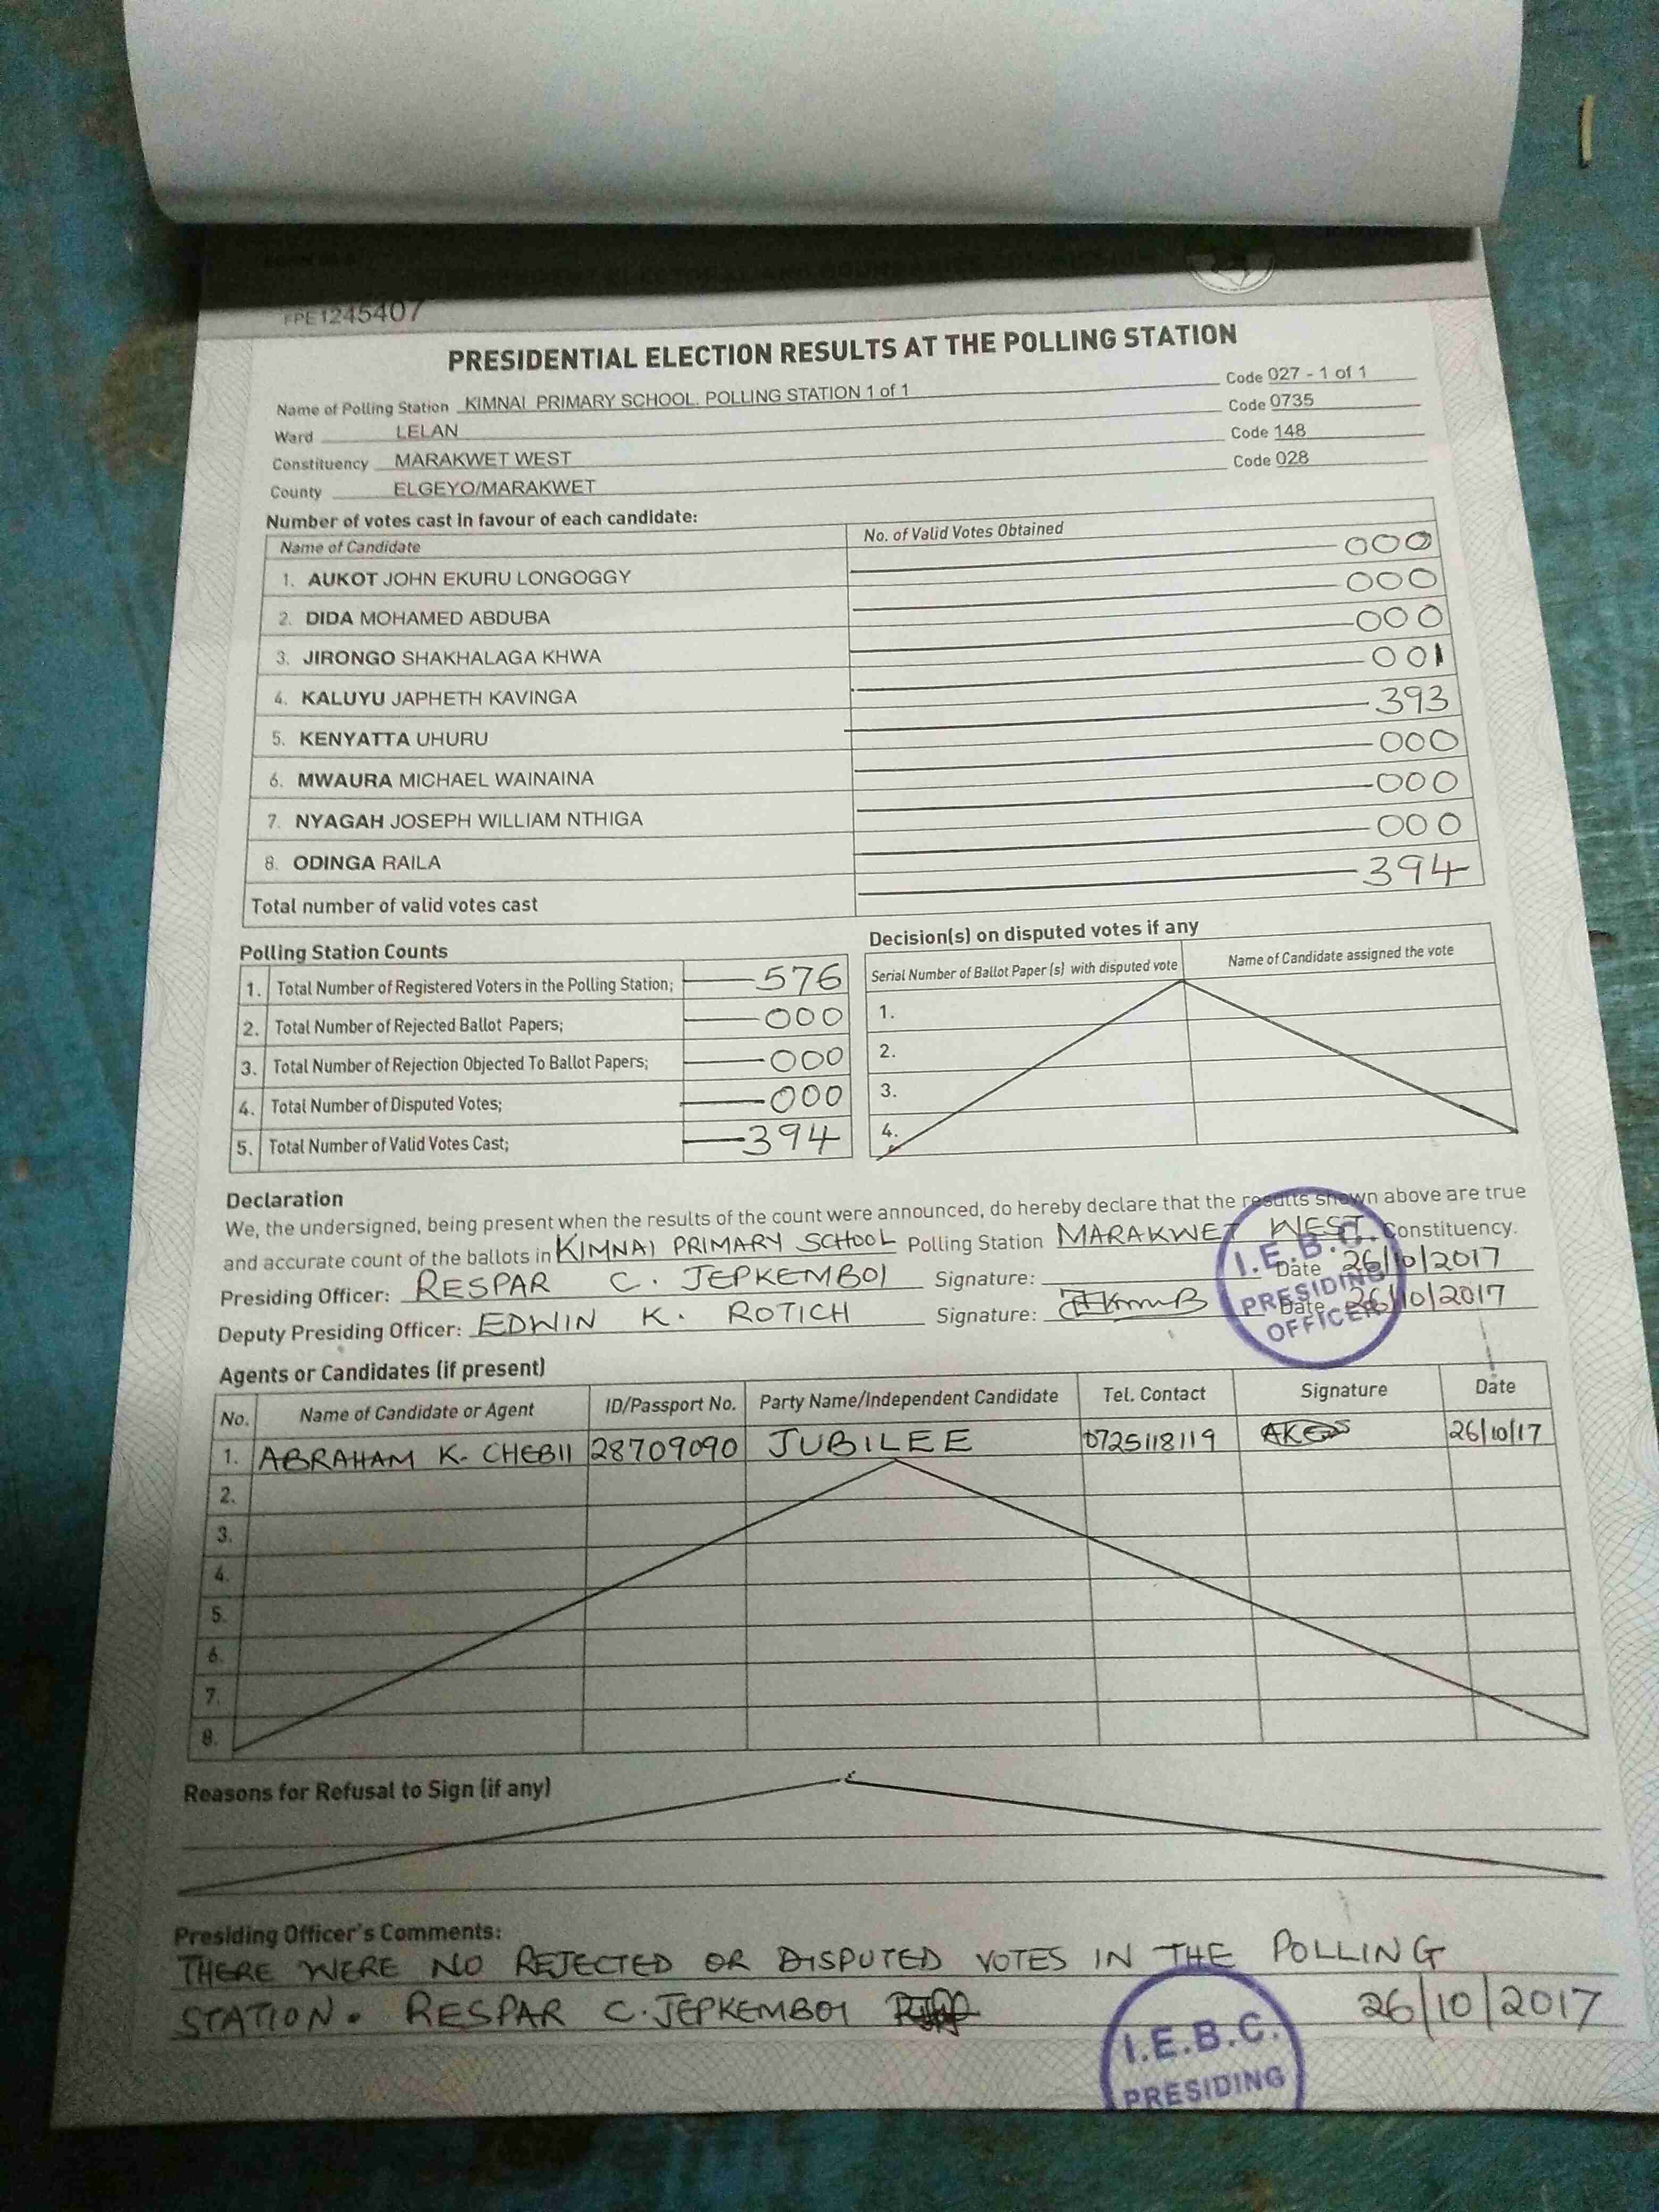 FPE1245407
PRESIDENTIAL ELECTION RESULTS AT THE POLLING STATION
Name of Polling Station KIMNAI PRIMARY SCHOOL. POLLING STATION 1 of 1 Code 027 - 1 of 1
Ward LELAN Code 0735
Constituency MARAKWET WEST Code 148
County ELGEYO/MARAKWET Code 028
Number of votes cast in favour of each candidate:
Name of Candidate No. of Valid Votes Obtained
1. AUKOT JOHN EKURU LONGOGGY 000
2. DIDA MOHAMED ABDUBA 000
3. JIRONGO SHAKHALAGA KHWA 000
4. KALUYU JAPHETH KAVINGA 001
5. KENYATTA UHURU 393
6. MWAURA MICHAEL WAINAINA 000
7. NYAGAH JOSEPH WILLIAM NTHIGA 000
8. ODINGA RAILA 000
Total number of valid votes cast 394
Polling Station Counts
1. Total Number of Registered Voters in the Polling Station; 576
2. Total Number of Rejected Ballot Papers; 000
3. Total Number of Rejection Objected To Ballot Papers; 000
4. Total Number of Disputed Votes; 000
5. Total Number of Valid Votes Cast; 394
Decision(s) on disputed votes if any
Serial Number of Ballot Paper (s) with disputed vote Name of Candidate assigned the vote
1.
2.
3.
4.
Declaration
We, the undersigned, being present when the results of the count were announced, do hereby declare that the results shown above are true
and accurate count of the ballots in KIMNAI PRIMARY SCHOOL Polling Station MARAKWET WEST Constituency.
Presiding Officer: RESPAR C. JEPKEMBOI Signature: Date 26/10/2017
Deputy Presiding Officer: EDWIN K. ROTICH Signature: Date 26/10/2017
I.E.B.C.
PRESIDING
OFFICER
Agents or Candidates (if present)
No. Name of Candidate or Agent ID/Passport No. Party Name/Independent Candidate Tel. Contact Signature Date
1. ABRAHAM K. CHEBII 28709090 JUBILEE 0725118119 26/10/17
2.
3.
4.
5.
6.
7.
8.
Reasons for Refusal to Sign (if any)
Presiding Officer's Comments:
THERE WERE NO REJECTED OR DISPUTED VOTES IN THE POLLING
STATION. RESPAR C. JEPKEMBOI 26/10/2017
I.E.B.C.
PRESIDING